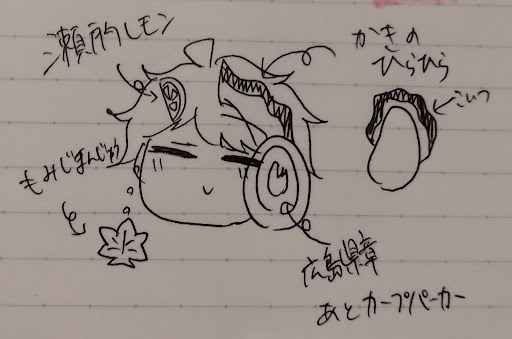 瀬戸内レモン
かきの
ひらひら
こいつ
もみじまんじゅう
広島県章
あとカープパーカー